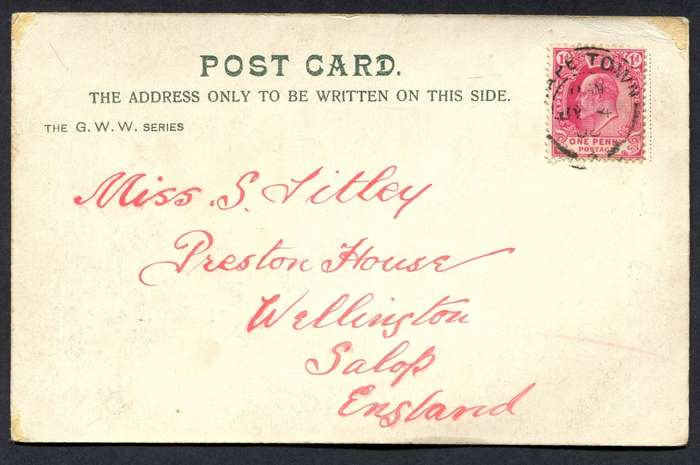 POST CARD.
THE ADDRESS ONLY TO BE WRITTEN ON THIS SIDE.
THE G. W. W. SERIES
1d
TOWN
JY 4
ONE PENNY
POSTAGE
Miss. S. Titley
Preston House
Wellington
Salop
England